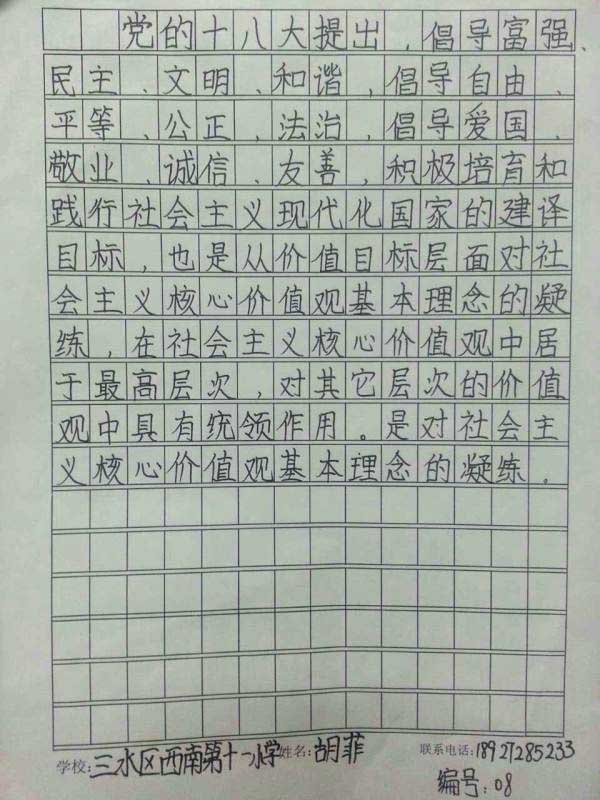 党的十八大提出，倡导富强、
民主、文明、和谐，倡导自由、
平等、公正，法治，倡导爱国、
敬业、诚信、友善，积极培育和
践行社会主义现代化国家的建译
目标，也是从价值目标层面对社
会主义核心价值观基本理念的凝
练，在社会主义核心价值观中居
于最高层次，对其它层次的价值
观中具有统领作用。是对社会主
义核心价值观基本理念的凝练．
学校：三水区西南第十一小学 姓名：胡菲 联系电话：18927285233
编号：08